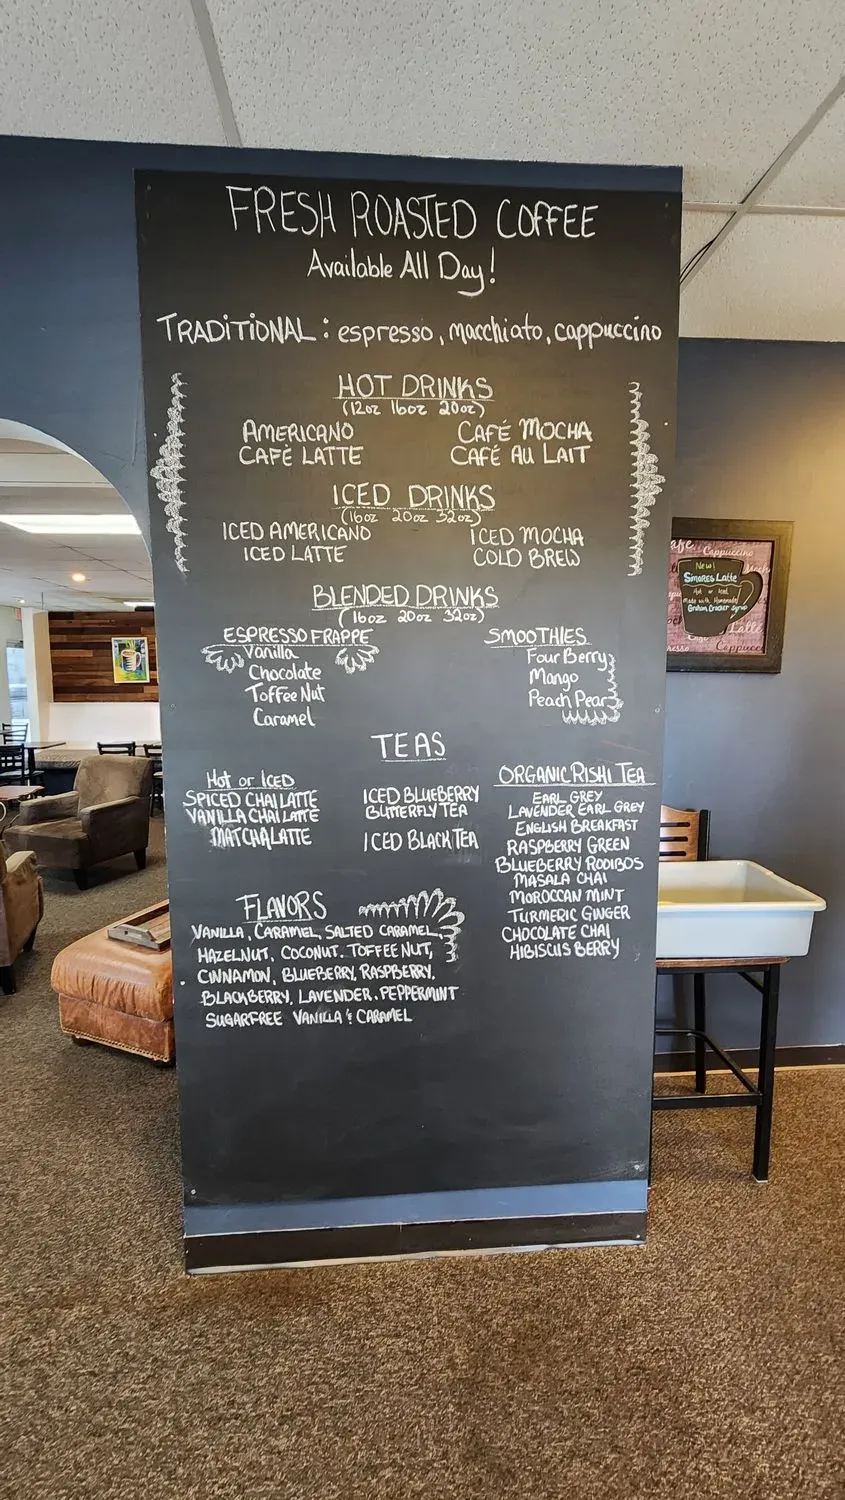 FRESH ROASTED COFFEE
Available All Day!
TRADITIONAL: espresso, macchiato, cappuccino
HOT DRINKS
(12oz 16oz 20oz)
AMERICANO
CAFÉ LATTE
CAFÉ MOCHA
CAFÉ AU LAIT
ICED DRINKS
(16oz 20oz 32oz)
ICED AMERICANO
ICED LATTE
ICED MOCHA
COLD BREW
BLENDED DRINKS
(16oz 20oz 32oz)
ESPRESSO FRAPPE
Vanilla
Chocolate
Toffee Nut
Caramel
SMOOTHIES
Four Berry
Mango
Peach Pear
TEAS
Hot or Iced
SPICED CHAI LATTE
VANILLA CHAI LATTE
MATCHA LATTE
ICED BLUEBERRY
BUTTERFLY TEA
ICED BLACK TEA
ORGANIC RISHI TEA
EARL GREY
LAVENDER EARL GREY
ENGLISH BREAKFAST
RASPBERRY GREEN
BLUEBERRY ROOIBOS
MASALA CHAI
MOROCCAN MINT
TURMERIC GINGER
CHOCOLATE CHAI
HIBISCUS BERRY
FLAVORS
VANILLA, CARAMEL, SALTED CARAMEL,
HAZELNUT, COCONUT. TOFFEE NUT,
CINNAMON, BLUEBERRY, RASPBERRY,
BLACKBERRY, LAVENDER. PEPPERMINT
SUGARFREE VANILLA & CARAMEL
Cappuccino
New!
Smores Latte
Hot or Iced
Made with Homemade
Graham Cracker Syrup
Latte